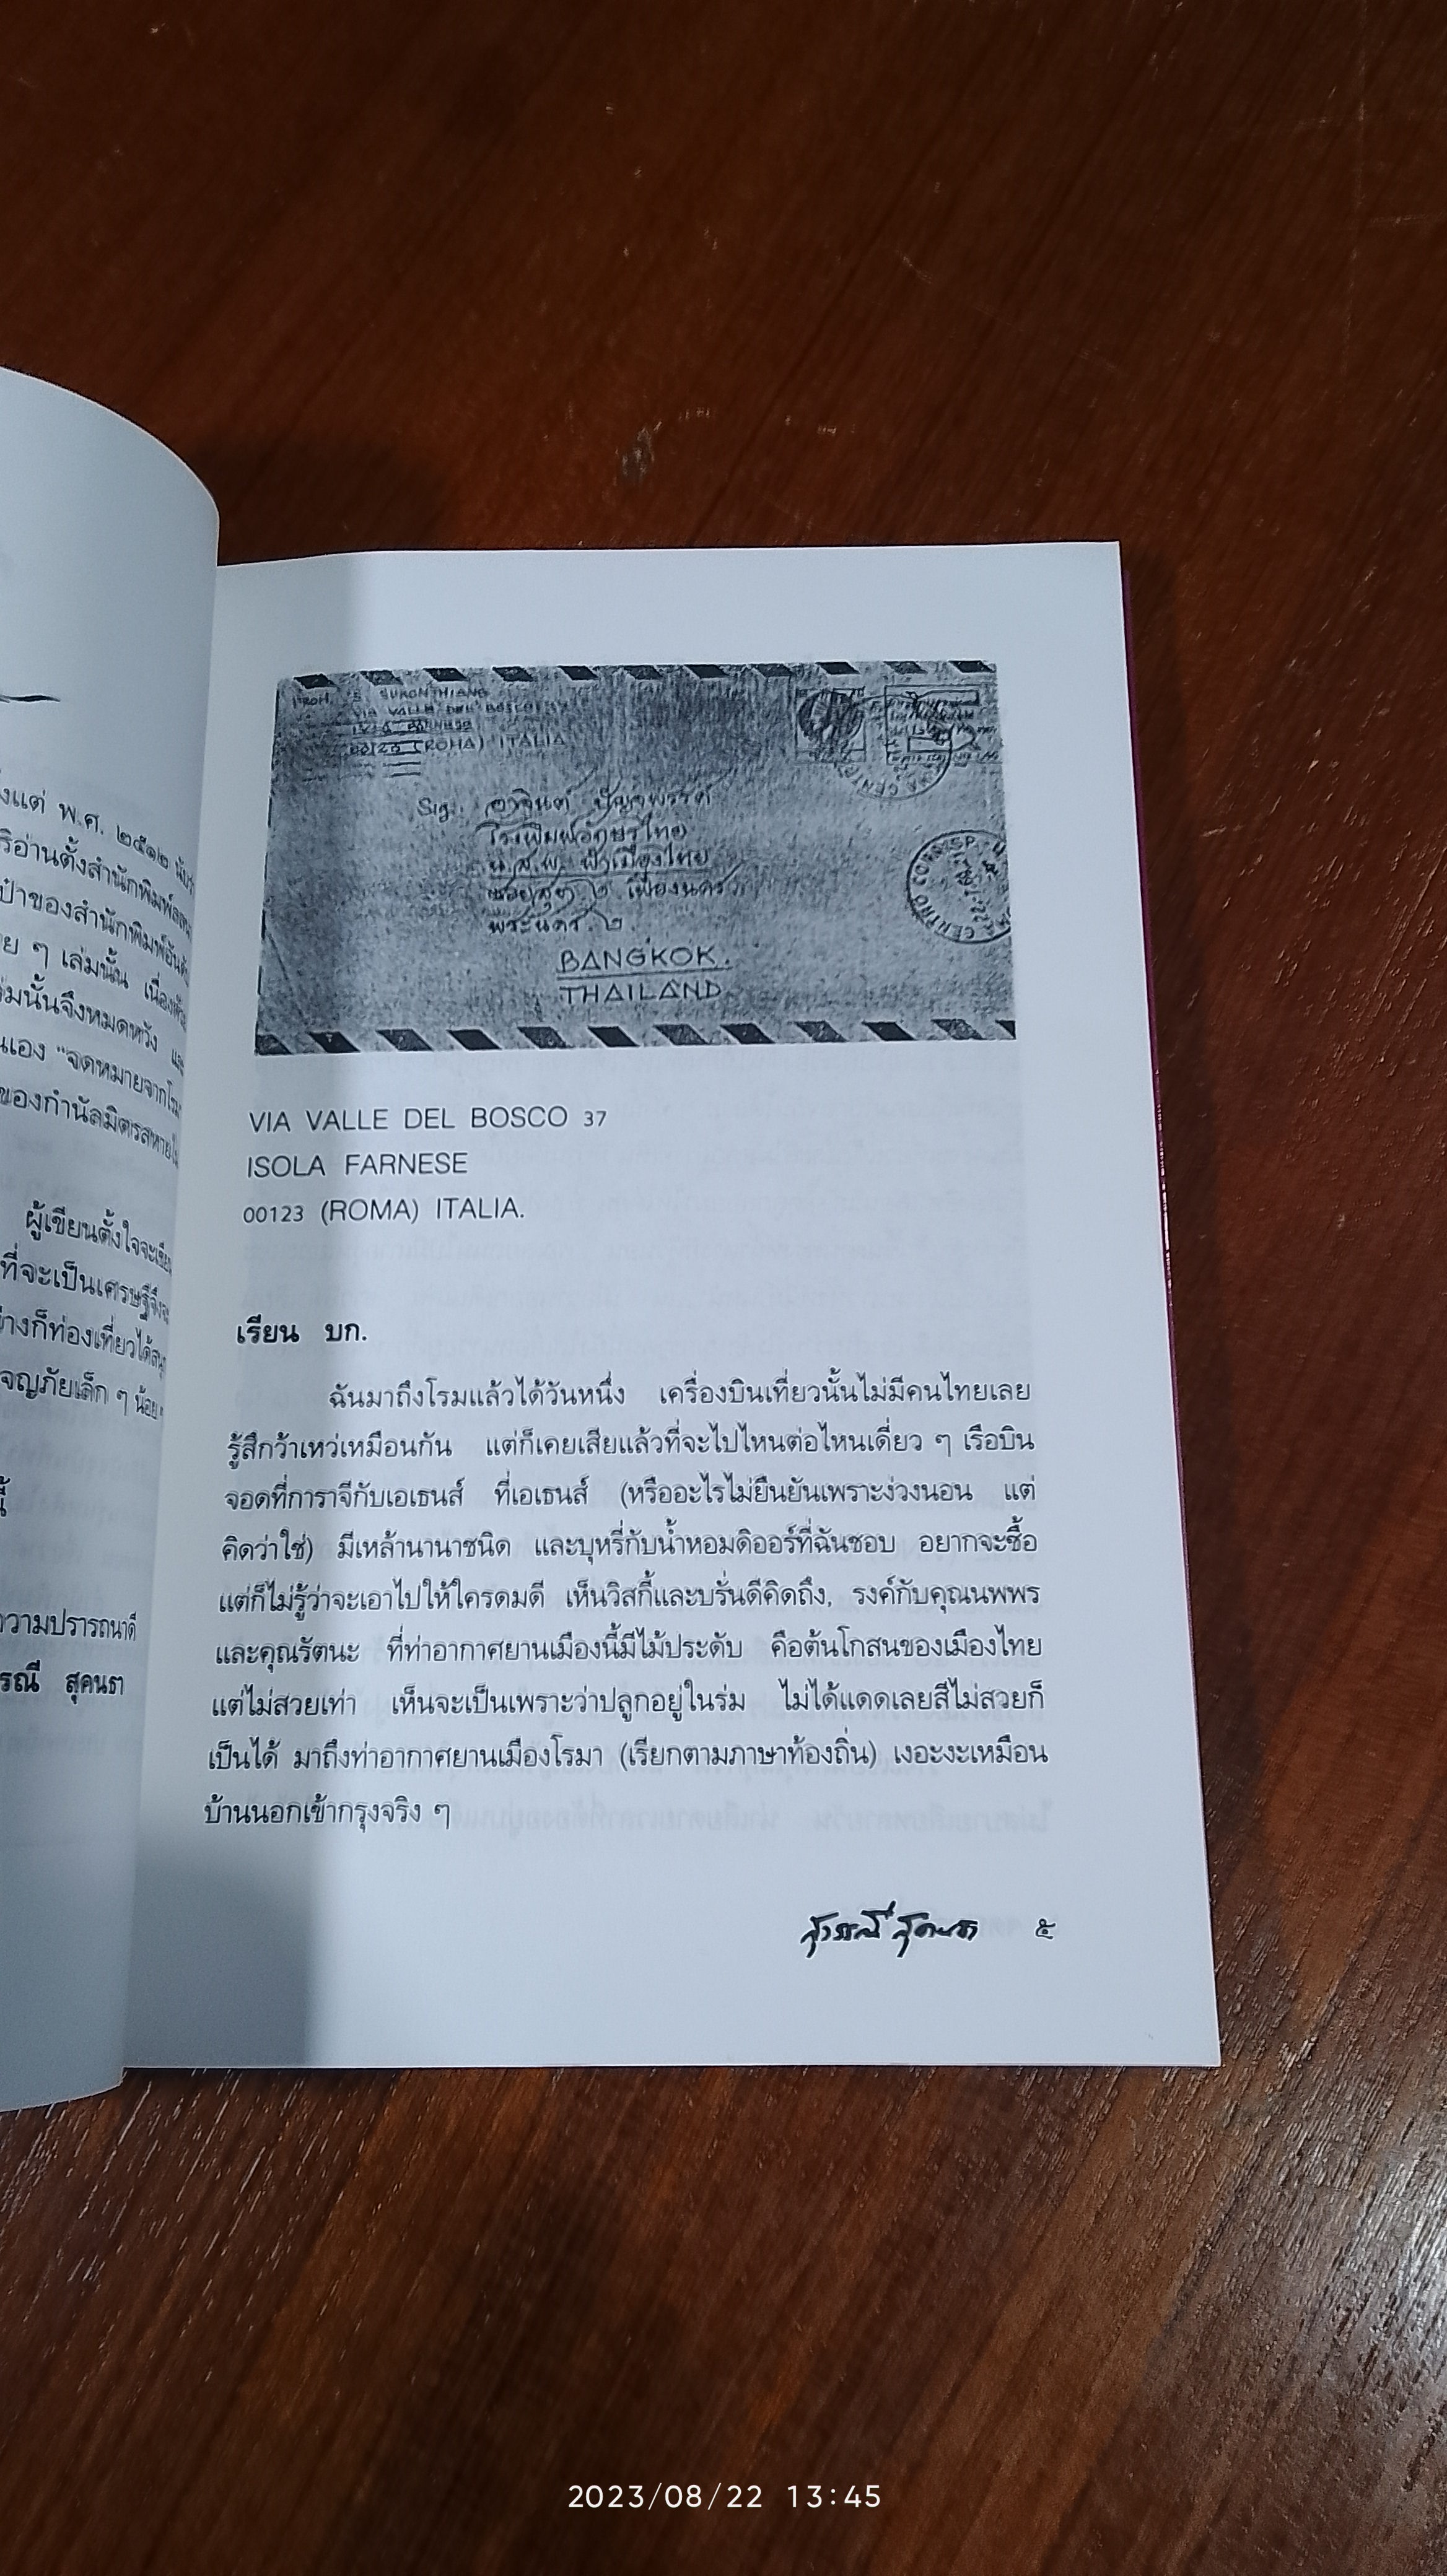 งแต่ พ.ศ. ๒๕๑๒
ริอ่านตั้งสำนักพิมพ์
เป๋าของสำนักพิมพ์
ย ๆ เล่มนั้น
มนั้นจึงหมดหวัง
นเอง "จดหมายจากโรม
ของกำนัลมิตรสหาย
ผู้เขียนตั้งใจจะเขียน
ที่จะเป็นเศรษฐีจึง
างก็ท่องเที่ยวได้
จญภัยเล็ก ๆ น้อย
ความปรารถนาดี
รณี สุคนธา
FROM. S. SUKONTHIANG
VIA VALLE DEL BOSCO
ISOLA FARNESE
00123 (ROMA) ITALIA
Sig. อาจินต์ ปัญจพรรค์
โรงพิมพ์อักษรไทย
น.ส.พ. ฟ้าเมืองไทย
เฟื่องนคร
พระนคร. ๒.
BANGKOK.
THAILAND
VIA VALLE DEL BOSCO 37
ISOLA FARNESE
00123 (ROMA) ITALIA.
เรียน บก.
ฉันมาถึงโรมแล้วได้วันหนึ่ง เครื่องบินเที่ยวนั้นไม่มีคนไทยเลย
รู้สึกว้าเหว่เหมือนกัน แต่ก็เคยเสียแล้วที่จะไปไหนต่อไหนเดี่ยว ๆ เรือบิน
จอดที่การาจีกับเอเธนส์ ที่เอเธนส์ (หรืออะไรไม่ยืนยันเพราะง่วงนอน แต่
คิดว่าใช่) มีเหล้านานาชนิด และบุหรี่กับน้ำหอมดิออร์ที่ฉันชอบ อยากจะซื้อ
แต่ก็ไม่รู้ว่าจะเอาไปให้ใครดมดี เห็นวิสกี้และบรั่นดีคิดถึง, รงค์กับคุณนพพร
และคุณรัตนะ ที่ท่าอากาศยานเมืองนี้มีไม้ประดับ คือต้นโกสนของเมืองไทย
แต่ไม่สวยเท่า เห็นจะเป็นเพราะว่าปลูกอยู่ในร่ม ไม่ได้แดดเลยสีไม่สวยก็
เป็นได้ มาถึงท่าอากาศยานเมืองโรมา (เรียกตามภาษาท้องถิ่น) เงอะงะเหมือน
บ้านนอกเข้ากรุงจริง ๆ
สุวรรณี สุคนธา ๕
2023/08/22 13:45